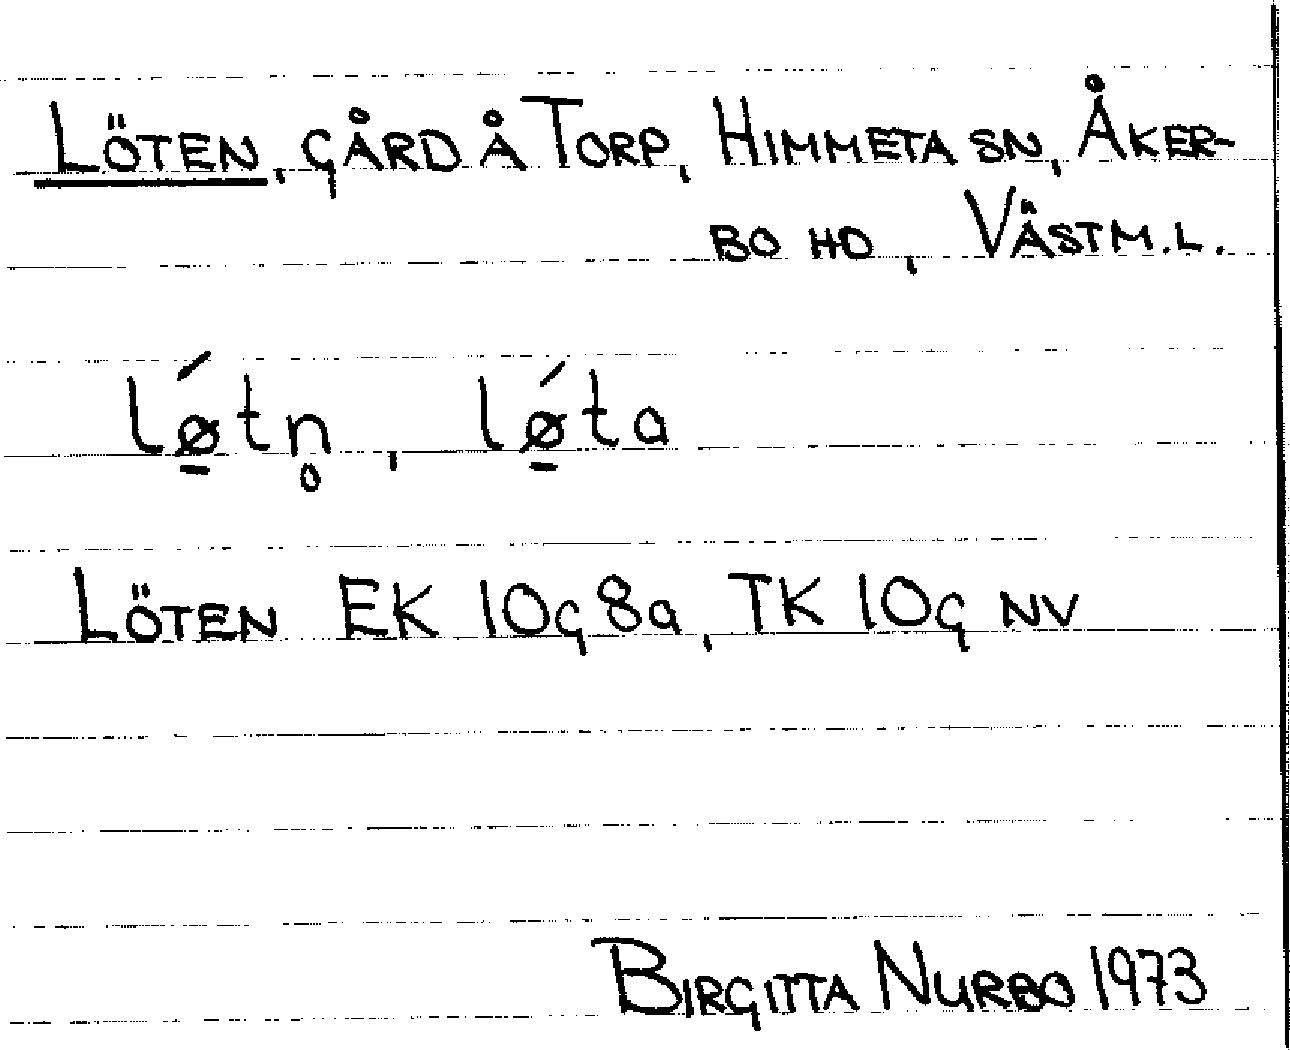 LÖTEN, GÅRD Å TORP, HIMMETA SN, ÅKER-
BO HD, VÄSTM.L.
lǿ̲tn̥, lǿ̲ta
LÖTEN EK 10g 8a, TK 10g NV
BIRGITTA NURBO 1973